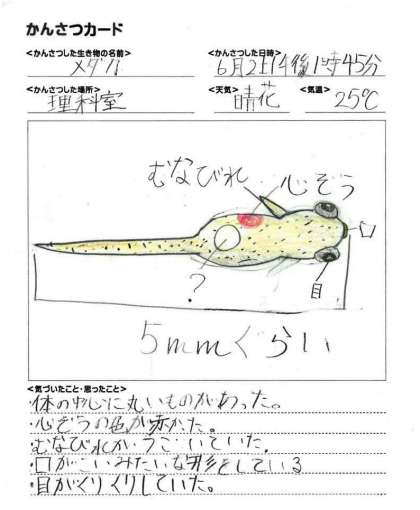 かんさつカード
<かんさつした生き物の名前> <かんさつした日時>
メダカ 6月21日 午後1時45分
<かんさつした場所> <天気> <気温>
理科室 晴 25℃
むなびれ 心ぞう
口
目
?
5mmぐらい
<気づいたこと・思ったこと>
・体の中心に丸いものがあった。
・心ぞうの色が赤かった。
・むなびれがうごいていた。
・口がこいみたいな形をしている
・目がくりくりしていた。